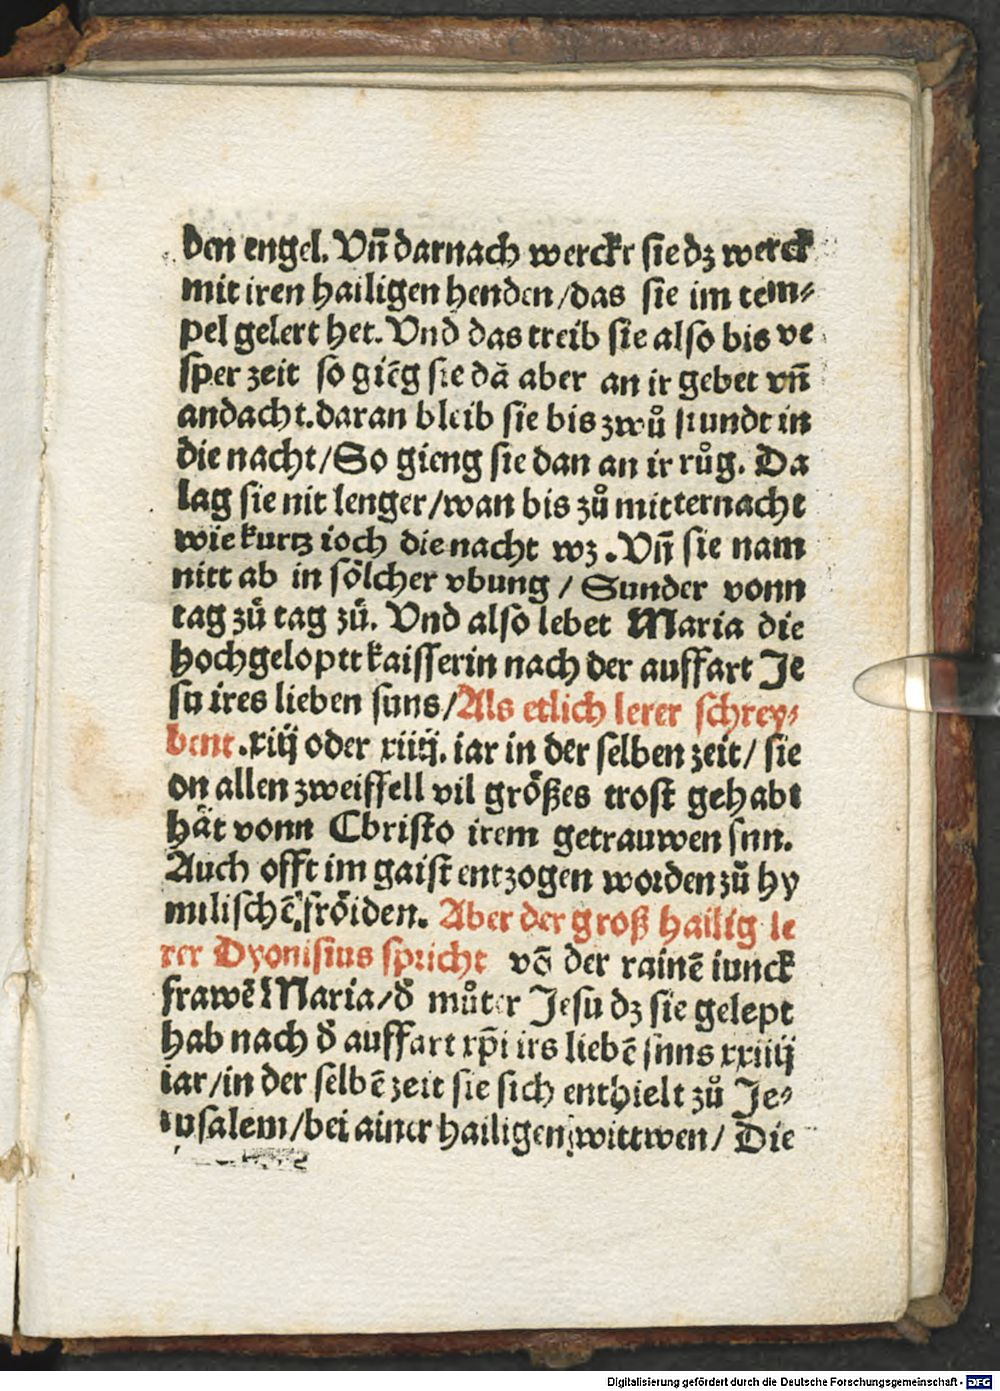 den engel. Vn̄ darnach werckr sie dz werck
mit iren hailigen henden/das sie im tem⸗
pel gelert het. Vnd das treib sie also bis ve
sper zeit so giēg sie dā aber an ir gebet vn̄
andacht. daran bleib sie bis zwů stundt in
die nacht/So gieng sie dan an ir růg. Da
lag sie nit lenger/wan bis zů mitternacht
wie kurtz ioch die nacht wz. Vn̄ sie nam
nitt ab in sölcher vbung / Sunder vonn
tag zů tag zů. Vnd also lebet Maria die
hochgeloptt kaisserin nach der auffart Je
su ires lieben suns/Als etlich lerer schrey⸗
bent. xiij oder xiiij. iar in der selben zeit/ sie
on allen zweiffell vil größes trost gehabt
hät vonn Christo irem getrauwen snn.
Auch offt im gaist entzogen worden zů hy
milischē fröiden. Aber der groß hailig le
rer Dyonisius spricht vō der rainē iunck
frawē Maria/d̄ můter Jesu dz sie gelept
hab nach d̄ auffart xp̄i irs liebē snns xxiiij
iar/in der selbē zeit sie sich enthielt zů Je⸗
rusalem/bei ainer hailigen wittwen/ Die
Digitalisierung gefördert durch die Deutsche Forschungsgemeinschaft - DFG